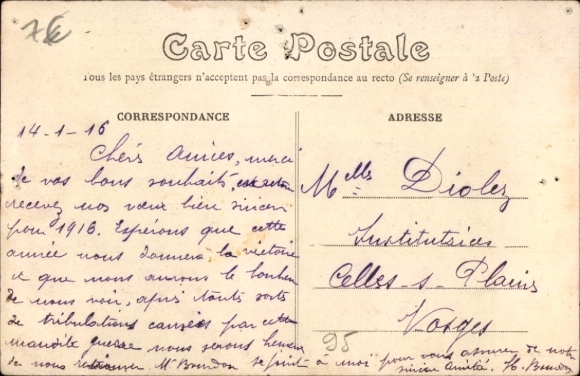 7€
Carte Postale
Tous les pays étrangers n'acceptent pas la correspondance au recto (Se renseigner à la Poste)
CORRESPONDANCE
14-1-16
Chères Amies, merci
de vos bons souhaits,
recevez nos vœux bien sincères
pour 1916. Espérons que cette
année nous donnera la victoire
et que nous aurons le bonheur
de nous voir, après toutes sortes
de tribulations causées par cette
maudite guerre nous serons heureux
de nous retrouver. Mr Bourdon se joint à moi pour vous assurer de notre
sincère amitié. H. Bourdon
ADRESSE
Melles Diolez
Institutrices
Celles-s-Plaine
Vosges
95